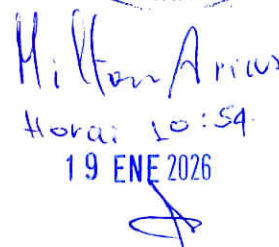 Milton Arias
Hora: 10:59
19 ENE 2026